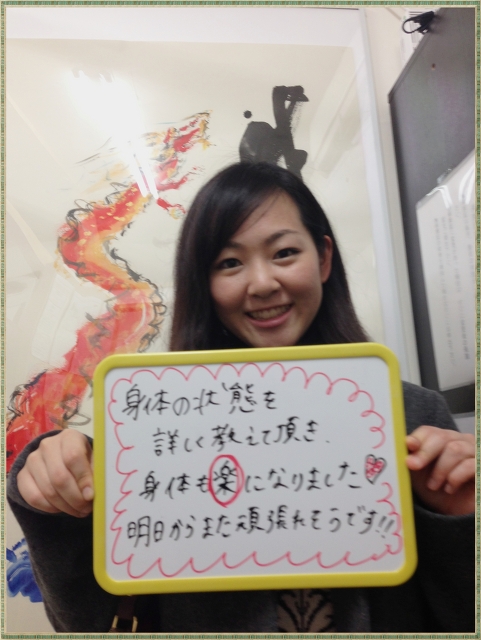 身体の状態を
詳しく教えて頂き、
身体も楽になりました
明日からまた頑張れそうです!!